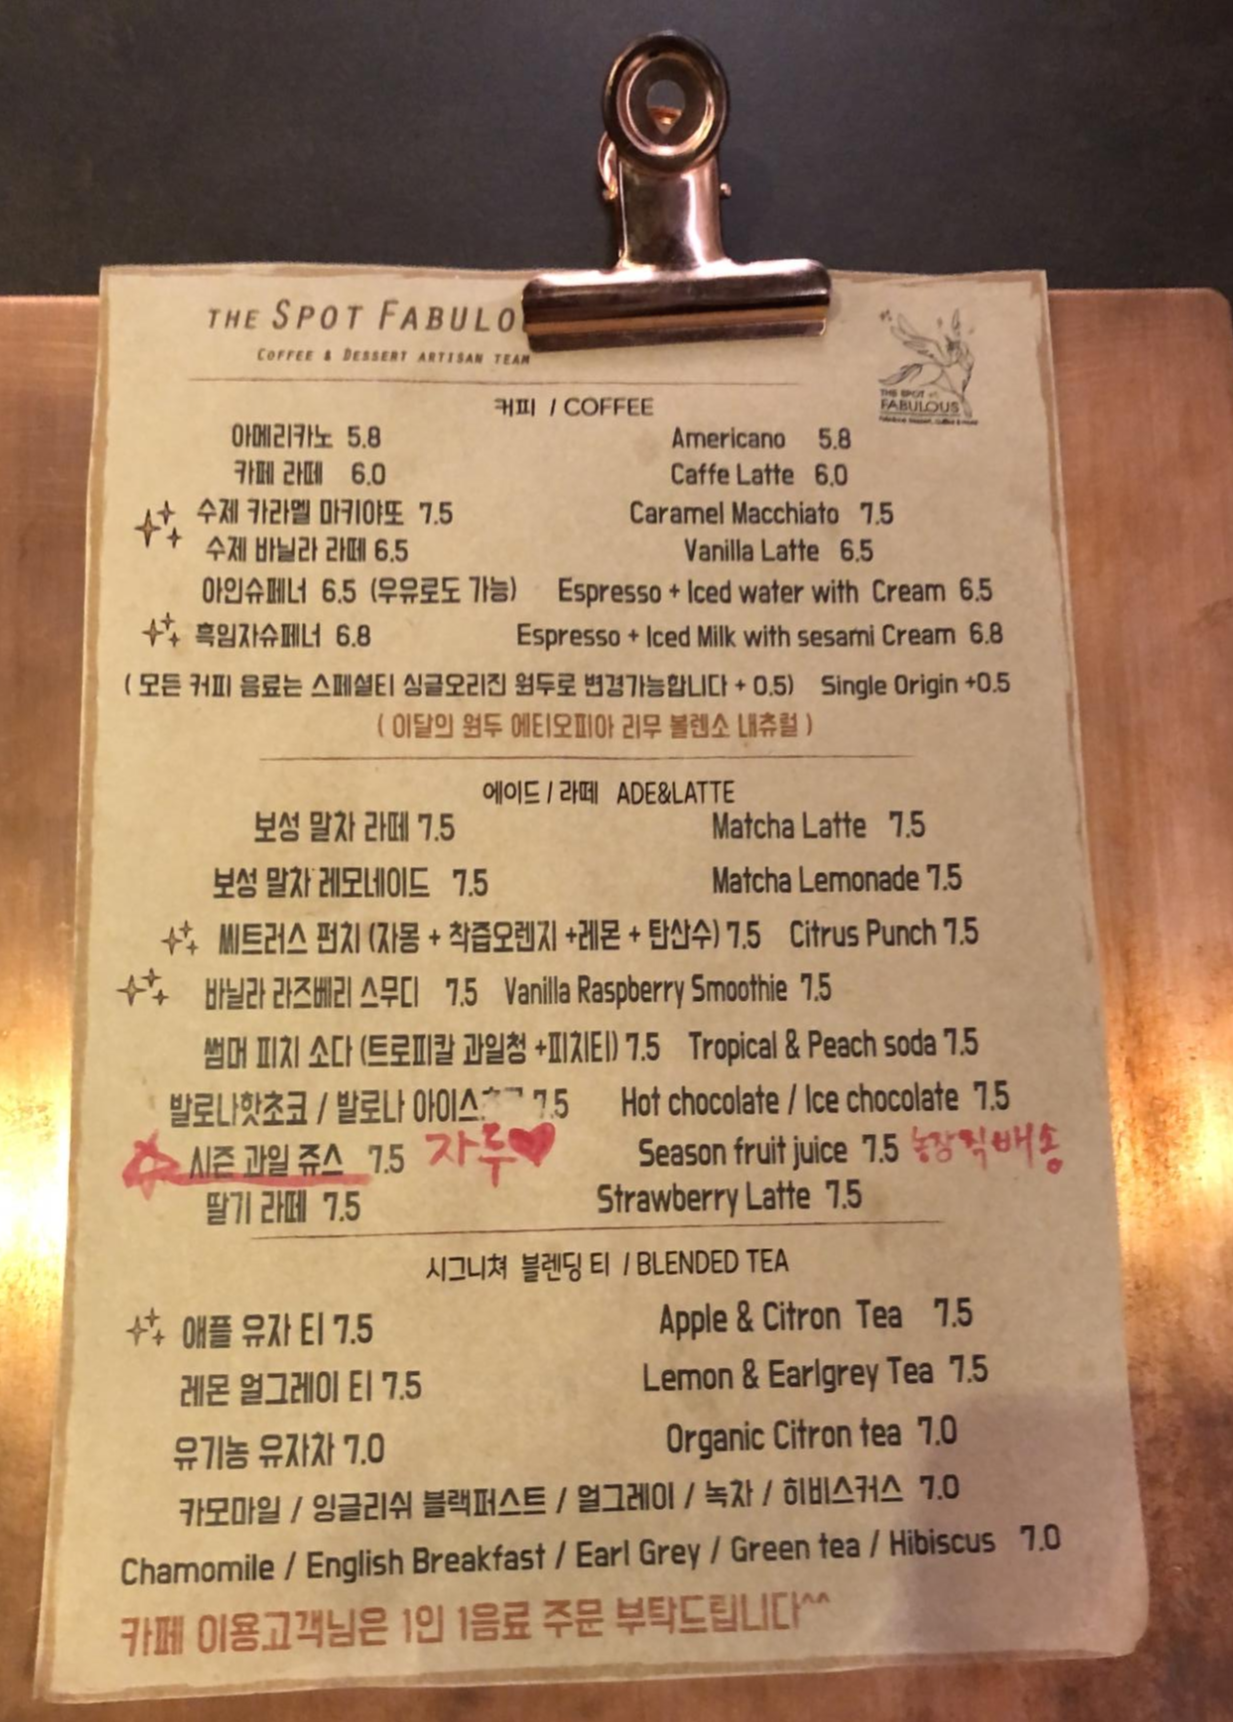 THE SPOT FABULO
COFFEE & DESSERT ARTISAN TEAM
THE SPOT
FABULOUS
커피 / COFFEE
아메리카노 5.8 Americano 5.8
카페 라떼 6.0 Caffe Latte 6.0
수제 카라멜 마키아또 7.5 Caramel Macchiato 7.5
수제 바닐라 라떼 6.5 Vanilla Latte 6.5
아인슈페너 6.5 (우유로도 가능) Espresso + Iced water with Cream 6.5
흑임자슈페너 6.8 Espresso + Iced Milk with sesami Cream 6.8
( 모든 커피 음료는 스페셜티 싱글오리진 원두로 변경가능합니다 + 0.5) Single Origin +0.5
( 이달의 원두 에티오피아 리무 볼렌소 내츄럴 )
에이드 / 라떼 ADE&LATTE
보성 말차 라떼 7.5 Matcha Latte 7.5
보성 말차 레모네이드 7.5 Matcha Lemonade 7.5
씨트러스 펀치 (자몽 + 착즙오렌지 +레몬 + 탄산수) 7.5 Citrus Punch 7.5
바닐라 라즈베리 스무디 7.5 Vanilla Raspberry Smoothie 7.5
썸머 피치 소다 (트로피칼 과일청 +피치티) 7.5 Tropical & Peach soda 7.5
발로나핫초코 / 발로나 7.5 Hot chocolate / Ice chocolate 7.5
시즌 과일 쥬스 7.5 자두♥ Season fruit juice 7.5 농장직배송
딸기 라떼 7.5 Strawberry Latte 7.5
시그니쳐 블렌딩 티 / BLENDED TEA
애플 유자 티 7.5 Apple & Citron Tea 7.5
레몬 얼그레이 티 7.5 Lemon & Earlgrey Tea 7.5
유기농 유자차 7.0 Organic Citron tea 7.0
카모마일 / 잉글리쉬 블랙퍼스트 / 얼그레이 / 녹차 / 히비스커스 7.0
Chamomile / English Breakfast / Earl Grey / Green tea / Hibiscus 7.0
카페 이용고객님은 1인 1음료 주문 부탁드립니다^^